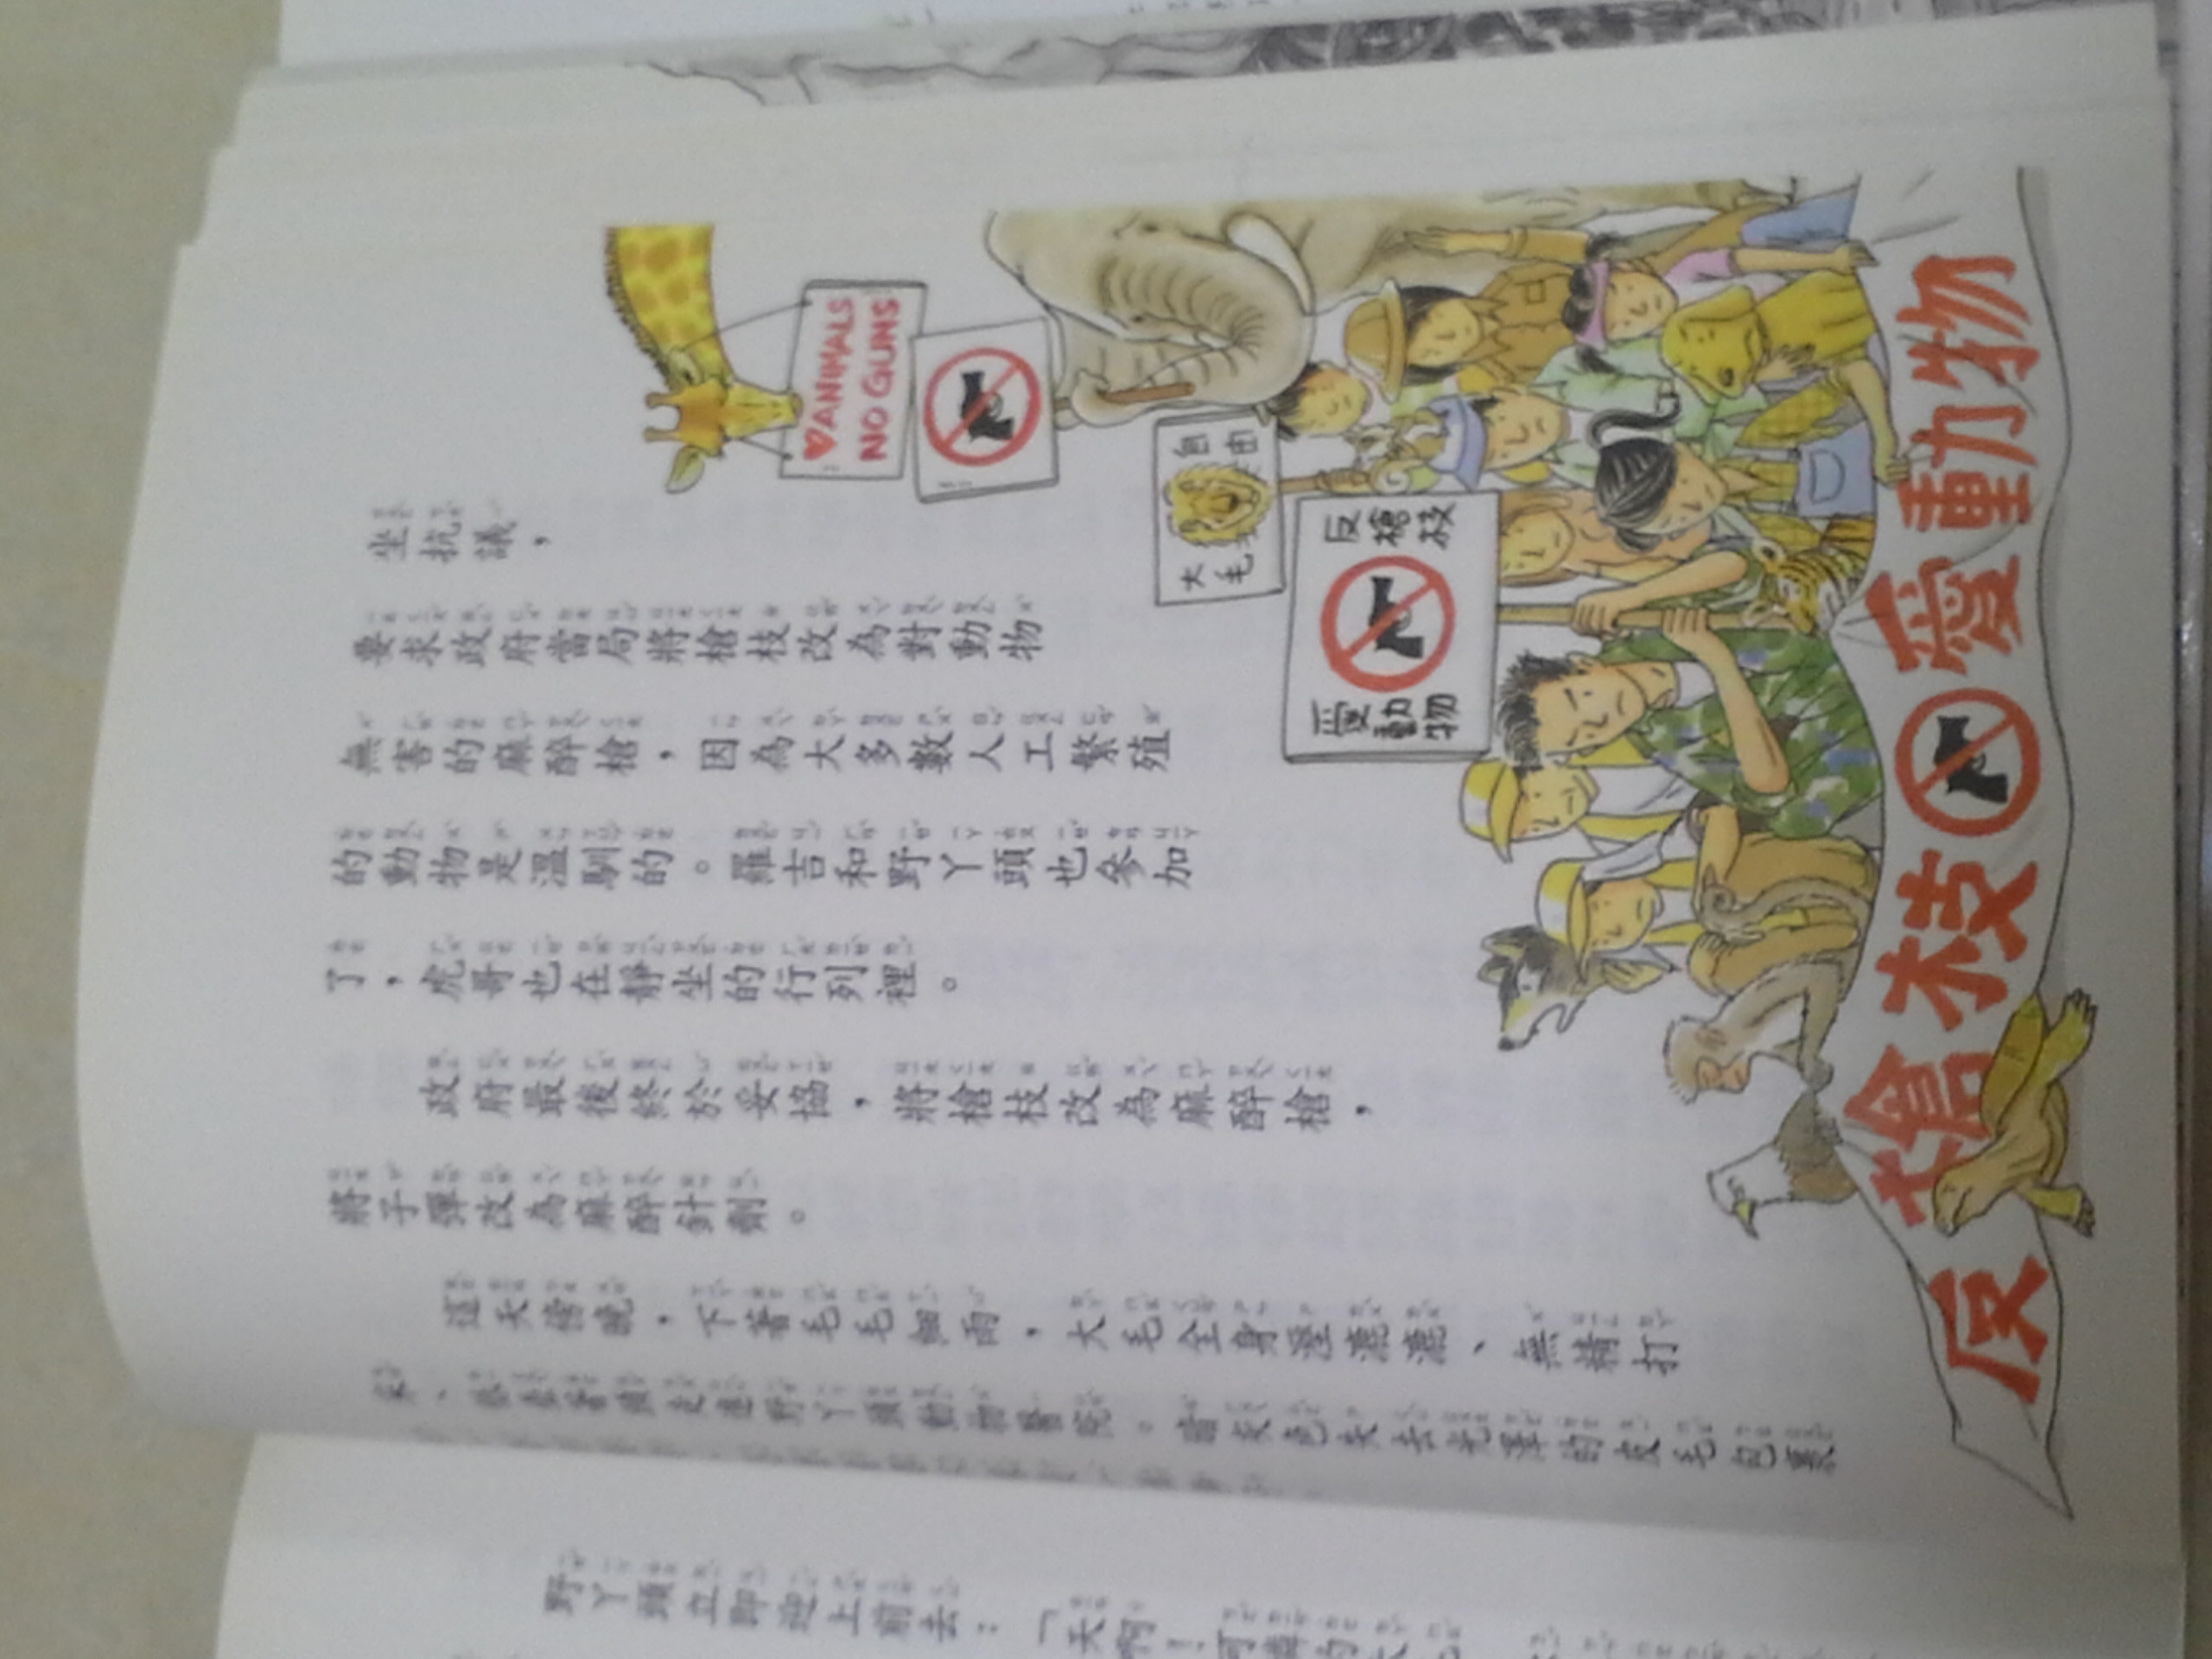 坐抗議，
要求政府當局將槍枝改為對動物
無害的麻醉槍，因為大多數人工繁殖
的動物是溫馴的。羅吉和野丫頭也參加
了，虎哥也在靜坐的行列裡。
政府最後終於妥協，將槍枝改為麻醉槍，
將子彈改為麻醉針劑。
這天傍晚，下著毛毛細雨，大毛全身溼漉漉、無精打
采、垂著頭走進野丫頭動物醫院。當灰色失去光澤的皮毛包裹
野丫頭立即迎上前去：「天啊！可憐的大
♥ANIMALS
NO GUNS
自由
大毛
反槍枝
愛動物
反槍枝 愛動物